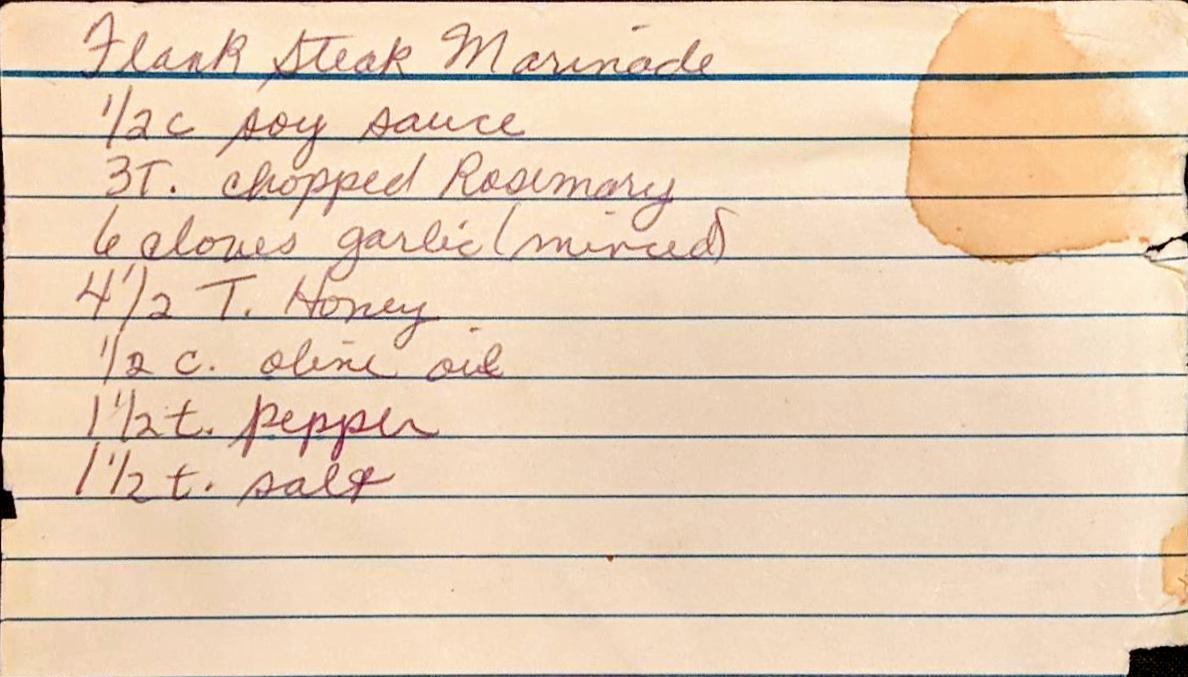 Flank Steak Marinade
1/2 c soy sauce
3T. chopped Rosemary
6 cloves garlic (minced)
4 1/2 T. Honey
1/2 c. olive oil
1 1/2 t. pepper
1 1/2 t. salt